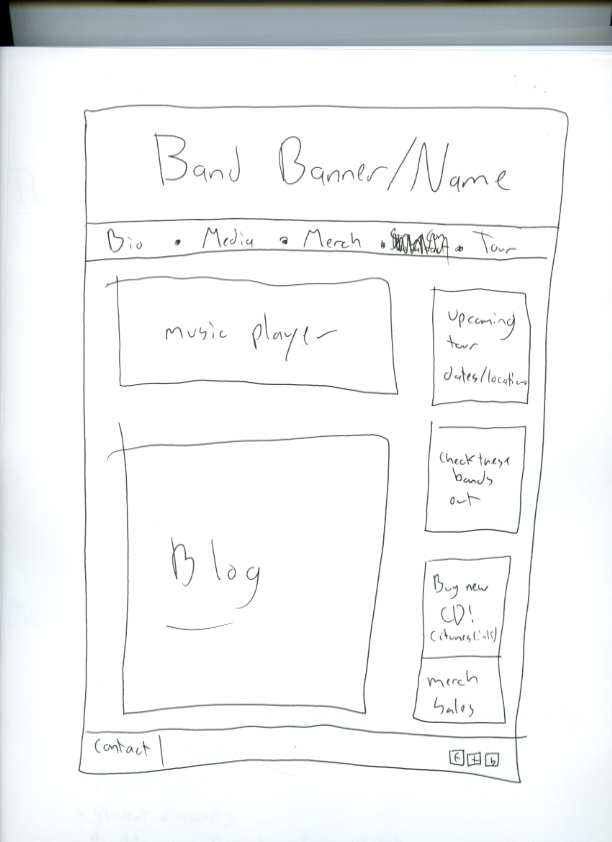 Band Banner/Name
Bio • Media • Merch • • Tour
music player
upcoming
tour
dates/location
check these
bands
out
Blog
Buy new
CD!
(itunes link)
merch
sales
contact
f t b